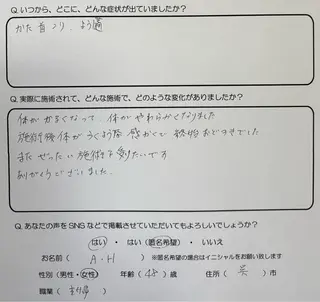 Q. いつから、どこに、どんな症状が出ていましたか？
かた首こり、よう通
Q. 実際に施術されて、どんな施術で、どのような変化がありましたか？
体がかるくなって、体がやわらかくなりました
施術後体がうくような感かくで終始おどろきでした
またぜったい施術を受けたいです
ありがとうございました。
Q. あなたの声をSNSなどで掲載させていただいてもよろしいでしょうか？
はい ・ はい（匿名希望） ・ いいえ
お名前（ A・H ）※匿名希望の場合はイニシャルをお願い致します
性別（男性・女性） 年齢（ 45 ）歳 住所（ 呉 ）市
職業（ 主婦 ）